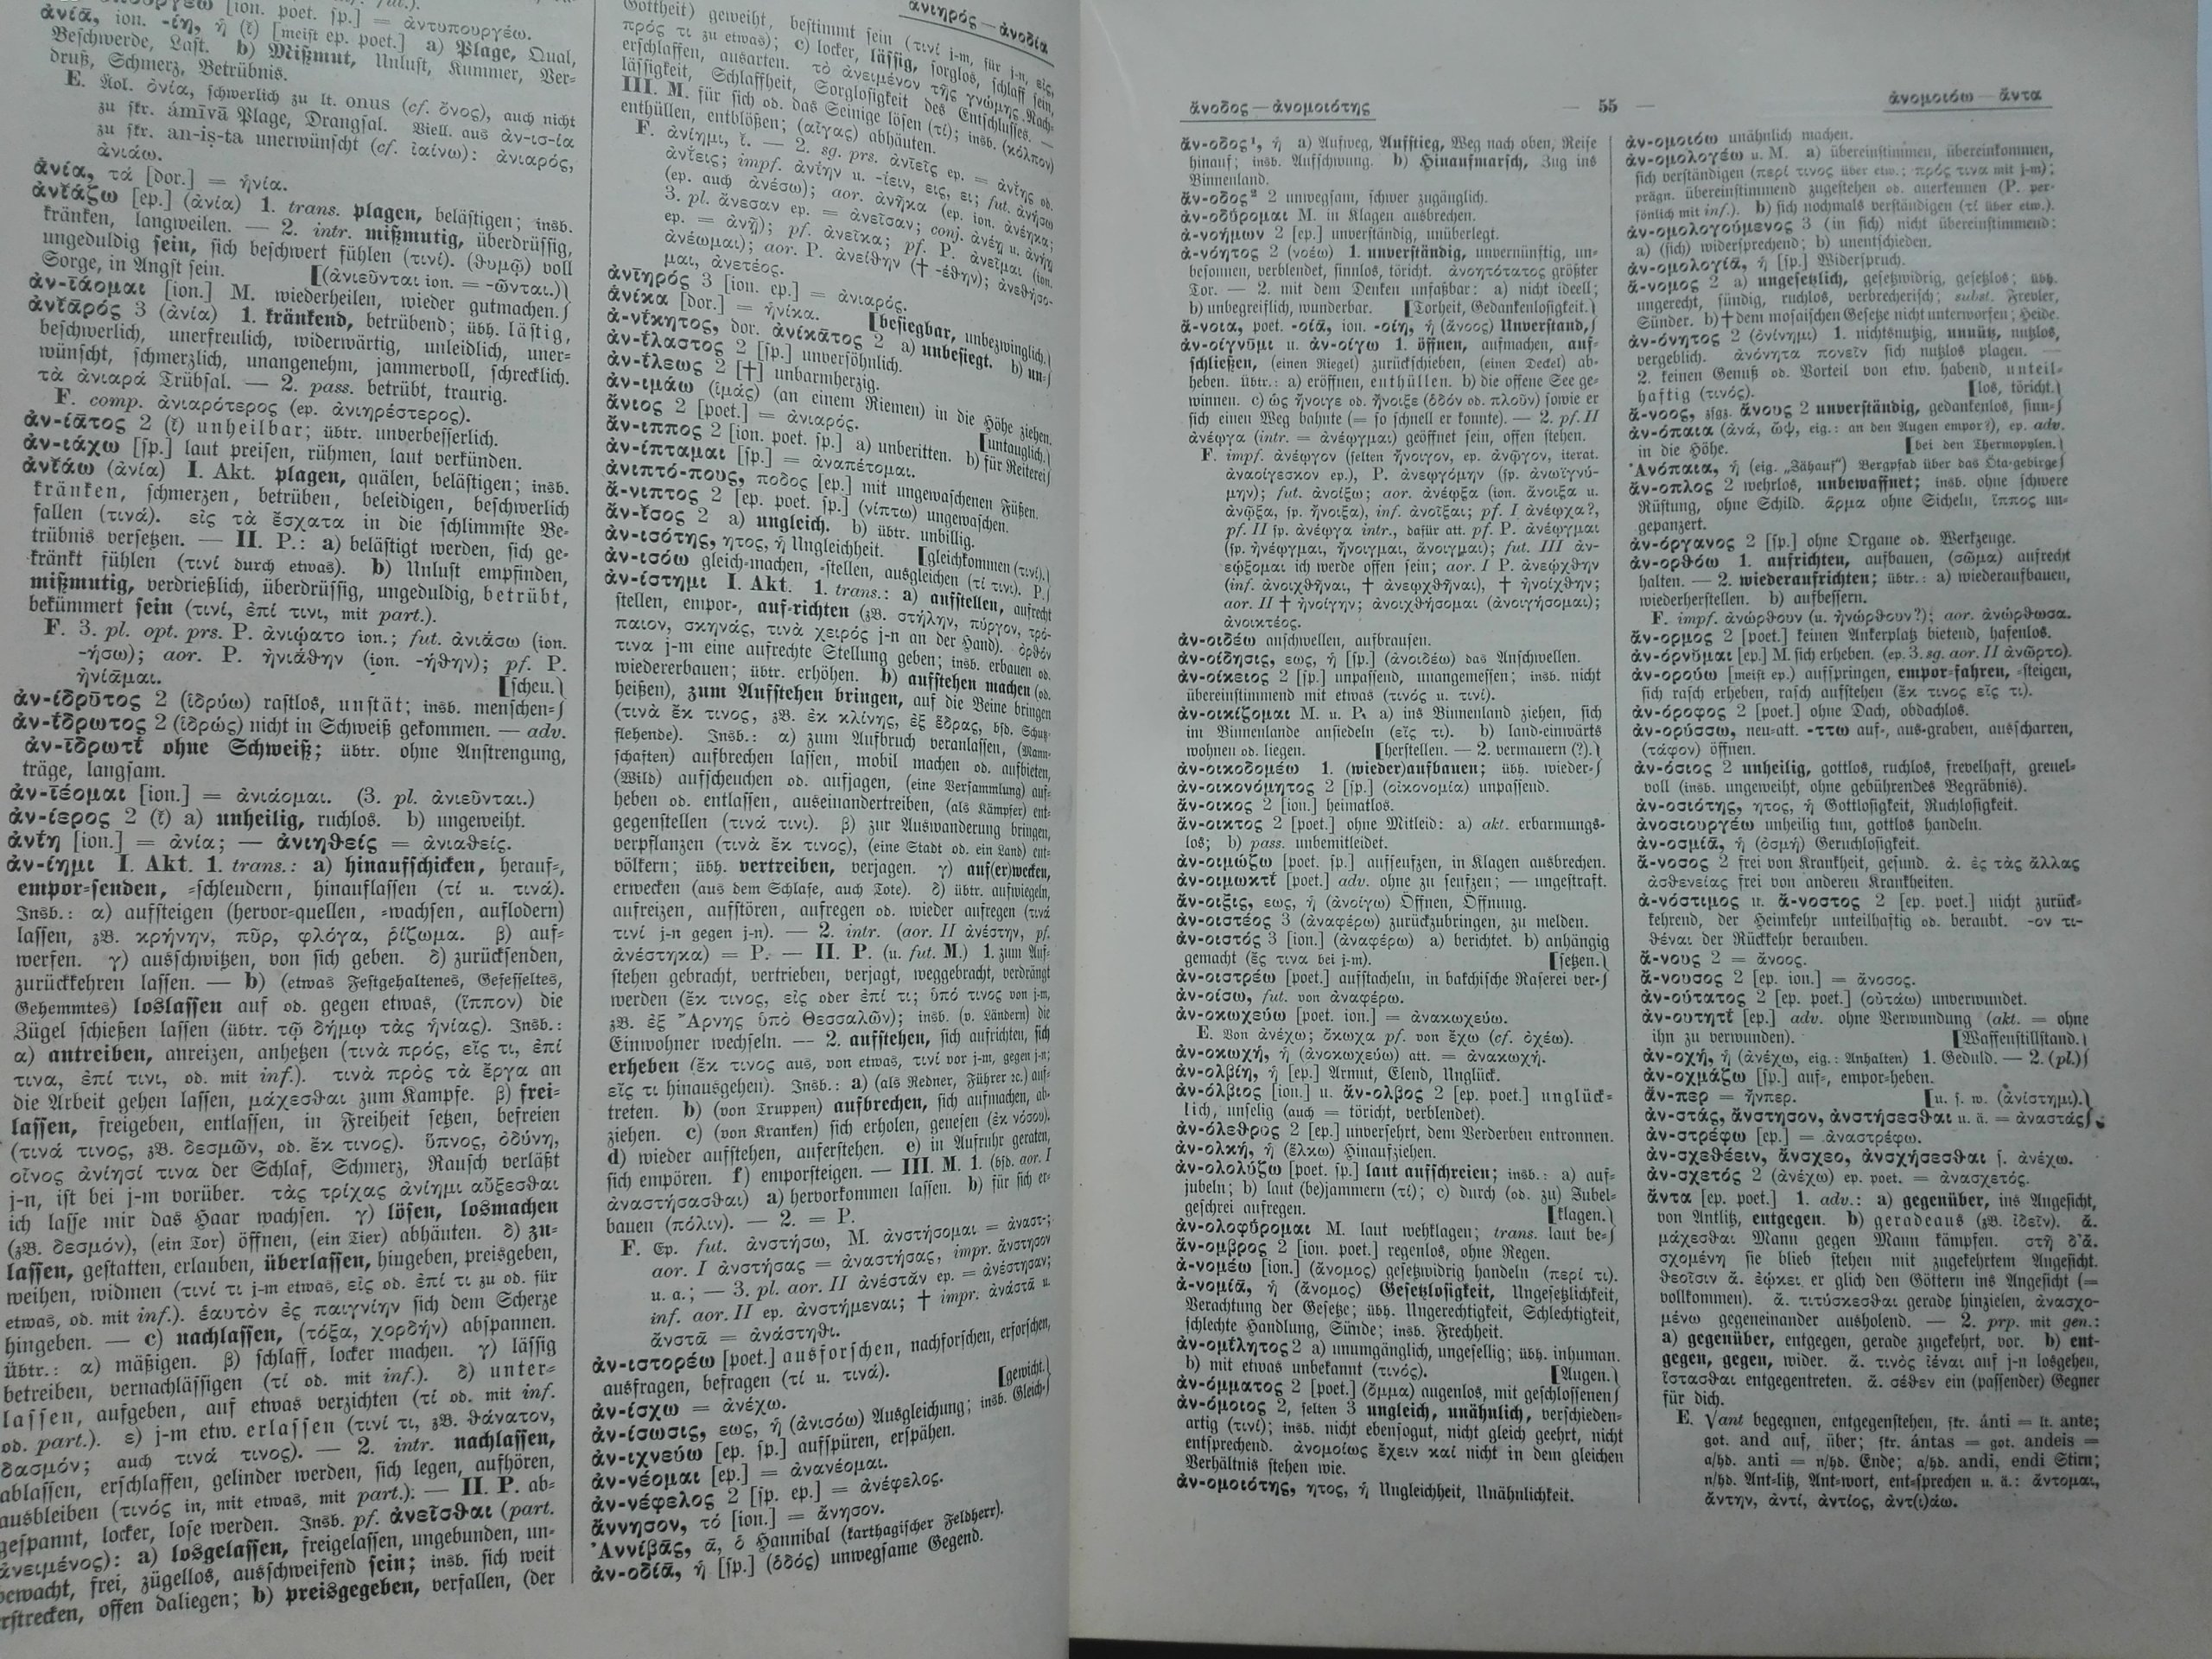 ἀνία, ion. -ίη, ἡ (ῑ) [meist ep. poet.] a) Plage, Qual,
Beschwerde, Last. b) Mißmut, Unlust, Kummer, Ver-
druß, Schmerz, Betrübnis.
E. Äol. ὀνία, schwerlich zu lt. onus (cf. ὄνος), auch nicht
zu skr. ámīvā Plage, Drangsal. Viell. aus ἀν-ισ-ία
zu skr. an-iṣ-ta unerwünscht (cf. ἰαίνω): ἀνιαρός,
ἀνιάω.
ἀνία, τά [dor.] = ἡνία.
ἀνῐάζω [ep.] (ἀνία) 1. trans. plagen, belästigen; insb.
kränken, langweilen. — 2. intr. mißmutig, überdrüssig,
ungeduldig sein, sich beschwert fühlen (τινί). (θυμῷ) voll
Sorge, in Angst sein. [(ἀνιεῦνται ion. = -ῶνται.)
ἀν-ῑάομαι [ion.] M. wiederheilen, wieder gutmachen.
ἀνῐᾱρός 3 (ἀνία) 1. kränkend, betrübend; übh. lästig,
beschwerlich, unerfreulich, widerwärtig, unleidlich, uner-
wünscht, schmerzlich, unangenehm, jammervoll, schrecklich.
τὰ ἀνιαρά Trübsal. — 2. pass. betrübt, traurig.
F. comp. ἀνιαρότερος (ep. ἀνιηρέστερος).
ἀν-ίᾱτος 2 (ῑ) unheilbar; übtr. unverbesserlich.
ἀν-ιάχω [sp.] laut preisen, rühmen, laut verkünden.
ἀνῐάω (ἀνία) I. Akt. plagen, quälen, belästigen; insb.
kränken, schmerzen, betrüben, beleidigen, beschwerlich
fallen (τινά). εἰς τὰ ἔσχατα in die schlimmste Be-
trübnis versetzen. — II. P.: a) belästigt werden, sich ge-
kränkt fühlen (τινί durch etwas). b) Unlust empfinden,
mißmutig, verdrießlich, überdrüssig, ungeduldig, betrübt,
bekümmert sein (τινί, ἐπί τινι, mit part.).
F. 3. pl. opt. prs. P. ἀνιῴατο ion.; fut. ἀνιάσω (ion.
-ήσω); aor. P. ἠνιάθην (ion. -ήθην); pf. P.
ἠνίᾱμαι. [scheu.
ἀν-ίδρῡτος 2 (ἱδρύω) rastlos, unstät; insb. menschen-
ἀν-ίδρωτος 2 (ἱδρώς) nicht in Schweiß gekommen. — adv.
ἀν-ῑδρωτῑ́ ohne Schweiß; übtr. ohne Anstrengung,
träge, langsam.
ἀν-ῑέομαι [ion.] = ἀνιάομαι. (3. pl. ἀνιεῦνται.)
ἀν-ίερος 2 (ῑ) a) unheilig, ruchlos. b) ungeweiht.
ἀνίη [ion.] = ἀνία; — ἀνιηθείς = ἀνιαθείς.
ἀν-ίημι I. Akt. 1. trans.: a) hinaufschicken, herauf-,
empor-senden, -schleudern, hinauflassen (τί u. τινά).
Insb.: α) aufsteigen (hervor-quellen, -wachsen, auflodern)
lassen, zB. κρήνην, πῦρ, φλόγα, ῥίζωμα. β) auf-
werfen. γ) ausschwitzen, von sich geben. δ) zurücksenden,
zurückkehren lassen. — b) (etwas Festgehaltenes, Gefesseltes,
Gehemmtes) loslassen auf od. gegen etwas, (ἵππον) die
Zügel schießen lassen (übtr. τῷ δήμῳ τὰς ἡνίας). Insb.:
α) antreiben, anreizen, anhetzen (τινὰ πρός, εἴς τι, ἐπί
τινα, ἐπί τινι, od. mit inf.). τινὰ πρὸς τὰ ἔργα an
die Arbeit gehen lassen, μάχεσθαι zum Kampfe. β) frei-
lassen, freigeben, entlassen, in Freiheit setzen, befreien
(τινά τινος, zB. δεσμῶν, od. ἔκ τινος). ὕπνος, ὀδύνη,
οἶνος ἀνίησί τινα der Schlaf, Schmerz, Rausch verläßt
j-n, ist bei j-m vorüber. τὰς τρίχας ἀνίημι αὔξεσθαι
ich lasse mir das Haar wachsen. γ) lösen, losmachen
(zB. δεσμόν), (ein Tor) öffnen, (ein Tier) abhäuten. δ) zu-
lassen, gestatten, erlauben, überlassen, hingeben, preisgeben,
weihen, widmen (τινί τι j-m etwas, εἰς od. ἐπί τι zu od. für
etwas, od. mit inf.). ἑαυτὸν ἐς παιγνίην sich dem Scherze
hingeben. — c) nachlassen, (τόξα, χορδήν) abspannen.
Übtr.: α) mäßigen. β) schlaff, locker machen. γ) lässig
betreiben, vernachlässigen (τί od. mit inf.). δ) unter-
lassen, aufgeben, auf etwas verzichten (τί od. mit inf.
od. part.). ε) j-m etw. erlassen (τινί τι, zB. θάνατον,
δασμόν; auch τινά τινος). — 2. intr. nachlassen,
ablassen, erschlaffen, gelinder werden, sich legen, aufhören,
ausbleiben (τινός in, mit etwas, mit part.): — II. P. ab-
gespannt, locker, lose werden. Insb. pf. ἀνεῖσθαι (part.
ἀνειμένος): a) losgelassen, freigelassen, ungebunden, un-
bewacht, frei, zügellos, ausschweifend sein; insb. sich weit
erstrecken, offen daliegen; b) preisgegeben, verfallen, (der
ἀνιηρός — ἀνοδία
Gottheit) geweiht, bestimmt sein (τινί j-m, für j-n, εἰς,
πρός τι zu etwas); c) locker, lässig, sorglos, schlaff sein,
erschlaffen, ausarten. τὸ ἀνειμένον τῆς γνώμης Nach-
lässigkeit, Schlaffheit, Sorglosigkeit des Entschlusses. —
III. M. für sich od. das Seinige lösen (τί); insb. (κόλπον)
enthüllen, entblößen; (αἶγας) abhäuten.
F. ἀνίημι, ῑ. — 2. sg. prs. ἀνιεῖς ep. = ἀνίης od.
ἀνίεις; impf. ἀνίην u. -ίειν, εις, ει; fut. ἀνήσω
(ep. auch ἀνέσω); aor. ἀνῆκα (ep. ion. ἀνέηκα;
3. pl. ἄνεσαν ep. = ἀνεῖσαν; conj. ἀνέῃ u. ἀνήῃ
ep. = ἀνῇ); pf. ἀνεῖκα; pf. P. ἀνεῖμαι (ion.
ἀνέωμαι); aor. P. ἀνείθην († -έθην); ἀνεθήσο-
μαι, ἀνετέος.
ἀνιηρός 3 [ion. ep.] = ἀνιαρός.
ἁνίκα [dor.] = ἡνίκα. [besiegbar, unbezwinglich.
ἀ-νίκητος, dor. ἀνίκᾱτος 2 a) unbesiegt. b) un-
ἀν-ῑ́λαστος 2 [sp.] unversöhnlich.
ἀν-ῑ́λεως 2 [†] unbarmherzig.
ἀν-ιμάω (ἱμάς) (an einem Riemen) in die Höhe ziehen.
ἄνιος 2 [poet.] = ἀνιαρός. [untauglich.
ἄν-ιππος 2 [ion. poet. sp.] a) unberitten. b) für Reiterei
ἀν-ίπταμαι [sp.] = ἀναπέτομαι.
ἀνιπτό-πους, ποδος [ep.] mit ungewaschenen Füßen.
ἄ-νιπτος 2 [ep. poet. sp.] (νίπτω) ungewaschen.
ἄν-ῐσος 2 a) ungleich. b) übtr. unbillig.
ἀν-ισότης, ητος, ἡ Ungleichheit. [gleichkommen (τινί).
ἀν-ισόω gleich-machen, -stellen, ausgleichen (τί τινι). P.
ἀν-ίστημι I. Akt. 1. trans.: a) aufstellen, aufrecht
stellen, empor-, auf-richten (zB. στήλην, πύργον, τρό-
παιον, σκηνάς, τινὰ χειρός j-n an der Hand). ὀρθόν
τινα j-m eine aufrechte Stellung geben; insb. erbauen od.
wiedererbauen; übtr. erhöhen. b) aufstehen machen (od.
heißen), zum Aufstehen bringen, auf die Beine bringen
(τινὰ ἔκ τινος, zB. ἐκ κλίνης, ἐξ ἕδρας, bsd. Schutz-
flehende). Insb.: α) zum Aufbruch veranlassen, (Mann-
schaften) aufbrechen lassen, mobil machen od. aufbieten,
(Wild) aufscheuchen od. aufjagen, (eine Versammlung) auf-
heben od. entlassen, auseinandertreiben, (als Kämpfer) ent-
gegenstellen (τινά τινι). β) zur Auswanderung bringen,
verpflanzen (τινὰ ἔκ τινος), (eine Stadt od. ein Land) ent-
völkern; übh. vertreiben, verjagen. γ) auf(er)wecken,
erwecken (aus dem Schlafe, auch Tote). δ) übtr. aufwiegeln,
aufreizen, aufstören, aufregen od. wieder aufregen (τινά
τινί j-n gegen j-n). — 2. intr. (aor. II ἀνέστην, pf.
ἀνέστηκα) = P. — II. P. (u. fut. M.) 1. zum Auf-
stehen gebracht, vertrieben, verjagt, weggebracht, verdrängt
werden (ἔκ τινος, εἰς oder ἐπί τι; ὑπό τινος von j-m,
zB. ἐξ Ἄρνης ὑπὸ Θεσσαλῶν); insb. (v. Ländern) die
Einwohner wechseln. — 2. aufstehen, sich aufrichten, sich
erheben (ἔκ τινος aus, von etwas, τινί vor j-m, gegen j-n;
εἴς τι hinausgehen). Insb.: a) (als Redner, Führer ꝛc.) auf-
treten. b) (von Truppen) aufbrechen, sich aufmachen, ab-
ziehen. c) (von Kranken) sich erholen, genesen (ἐκ νόσου).
d) wieder aufstehen, auferstehen. e) in Aufruhr geraten,
sich empören. f) emporsteigen. — III. M. 1. (bsd. aor. I
ἀναστήσασθαι) a) hervorkommen lassen. b) für sich er-
bauen (πόλιν). — 2. = P.
F. Ep. fut. ἀνστήσω, M. ἀνστήσομαι = ἀναστ-;
aor. I ἀνστήσας = ἀναστήσας, impr. ἄνστησον
u. a.; — 3. pl. aor. II ἀνέστᾰν ep. = ἀνέστησαν;
inf. aor. II ep. ἀνστήμεναι; † impr. ἀνάστᾱ u.
ἄνστᾱ = ἀνάστηθι.
ἀν-ιστορέω [poet.] ausforschen, nachforschen, erforschen,
ausfragen, befragen (τί u. τινά). [gewicht.
ἀν-ίσχω = ἀνέχω.
ἀν-ίσωσις, εως, ἡ (ἀνισόω) Ausgleichung; insb. Gleich-
ἀν-ιχνεύω [ep. sp.] aufspüren, erspähen.
ἀν-νέομαι [ep.] = ἀνανέομαι.
ἀν-νέφελος 2 [sp. ep.] = ἀνέφελος.
ἄννησον, τό [ion.] = ἄνησον.
Ἀννίβᾱς, ᾱ, ὁ Hannibal (karthagischer Feldherr).
ἀν-οδίᾱ, ἡ [sp.] (ὁδός) unwegsame Gegend.
ἄνοδος — ἀνομοιότης
— 55 —
ἀνομοιόω — ἄντα
ἄν-οδος¹, ἡ a) Aufweg, Aufstieg, Weg nach oben, Reise
hinauf; insb. Aufschwung. b) Hinaufmarsch, Zug ins
Binnenland.
ἄν-οδος² 2 unwegsam, schwer zugänglich.
ἀν-οδύρομαι M. in Klagen ausbrechen.
ἀ-νοήμων 2 [ep.] unverständig, unüberlegt.
ἀ-νόητος 2 (νοέω) 1. unverständig, unvernünftig, un-
besonnen, verblendet, sinnlos, töricht. ἀνοητότατος größter
Tor. — 2. mit dem Denken unfaßbar: a) nicht ideell;
b) unbegreiflich, wunderbar. [Torheit, Gedankenlosigkeit.
ἄ-νοια, poet. -οιᾱ́, ion. -οίη, ἡ (ἄνοος) Unverstand,
ἀν-οίγνῡμι u. ἀν-οίγω 1. öffnen, aufmachen, auf-
schließen, (einen Riegel) zurückschieben, (einen Deckel) ab-
heben. übtr.: a) eröffnen, enthüllen. b) die offene See ge-
winnen. c) ὡς ἤνοιγε od. ἤνοιξε (ὁδόν od. πλοῦν) sowie er
sich einen Weg bahnte (= so schnell er konnte). — 2. pf. II
ἀνέῳγα (intr. = ἀνέῳγμαι) geöffnet sein, offen stehen.
F. impf. ἀνέῳγον (selten ἤνοιγον, ep. ἀνῷγον, iterat.
ἀναοίγεσκον ep.), P. ἀνεῳγόμην (sp. ἀνωϊγνύ-
μην); fut. ἀνοίξω; aor. ἀνέῳξα (ion. ἄνοιξα u.
ἀνῷξα, sp. ἤνοιξα), inf. ἀνοῖξαι; pf. I ἀνέῳχα?,
pf. II sp. ἀνέῳγα intr., dafür att. pf. P. ἀνέῳγμαι
(sp. ἠνέῳγμαι, ἤνοιγμαι, ἄνοιγμαι); fut. III ἀν-
εῴξομαι ich werde offen sein; aor. I P. ἀνεῴχθην
(inf. ἀνοιχθῆναι, † ἀνεῳχθῆναι), † ἠνοίχθην;
aor. II † ἠνοίγην; ἀνοιχθήσομαι (ἀνοιγήσομαι);
ἀνοικτέος.
ἀν-οιδέω anschwellen, aufbrausen.
ἀν-οίδησις, εως, ἡ [sp.] (ἀνοιδέω) das Anschwellen.
ἀν-οίκειος 2 [sp.] unpassend, unangemessen; insb. nicht
übereinstimmend mit etwas (τινός u. τινί).
ἀν-οικίζομαι M. u. P. a) ins Binnenland ziehen, sich
im Binnenlande ansiedeln (εἴς τι). b) land-einwärts
wohnen od. liegen. [herstellen. — 2. vermauern (?).
ἀν-οικοδομέω 1. (wieder)aufbauen; übh. wieder-
ἀν-οικονόμητος 2 [sp.] (οἰκονομία) unpassend.
ἄν-οικος 2 [ion.] heimatlos.
ἄν-οικτος 2 [poet.] ohne Mitleid: a) akt. erbarmungs-
los; b) pass. unbemitleidet.
ἀν-οιμώζω [poet. sp.] aufseufzen, in Klagen ausbrechen.
ἀν-οιμωκτί [poet.] adv. ohne zu seufzen; — ungestraft.
ἄν-οιξις, εως, ἡ (ἀνοίγω) Öffnen, Öffnung.
ἀν-οιστέος 3 (ἀναφέρω) zurückzubringen, zu melden.
ἀν-οιστός 3 [ion.] (ἀναφέρω) a) berichtet. b) anhängig
gemacht (ἔς τινα bei j-m). [setzen.
ἀν-οιστρέω [poet.] aufstacheln, in bakchische Raserei ver-
ἀν-οίσω, fut. von ἀναφέρω.
ἀν-οκωχεύω [poet. ion.] = ἀνακωχεύω.
E. Von ἀνέχω; ὄκωχα pf. von ἔχω (cf. ὀχέω).
ἀν-οκωχή, ἡ (ἀνοκωχεύω) att. = ἀνακωχή.
ἀν-ολβίη, ἡ [ep.] Armut, Elend, Unglück.
ἀν-όλβιος [ion.] u. ἄν-ολβος 2 [ep. poet.] unglück-
lich, unselig (auch = töricht, verblendet).
ἀν-όλεθρος 2 [ep.] unversehrt, dem Verderben entronnen.
ἀν-ολκή, ἡ (ἕλκω) Hinaufziehen.
ἀν-ολολύζω [poet. sp.] laut aufschreien; insb.: a) auf-
jubeln; b) laut (be)jammern (τί); c) durch (od. zu) Jubel-
geschrei aufregen. [klagen.
ἀν-ολοφύρομαι M. laut wehklagen; trans. laut be-
ἄν-ομβρος 2 [ion. poet.] regenlos, ohne Regen.
ἀ-νομέω [ion.] (ἄνομος) gesetzwidrig handeln (περί τι).
ἀ-νομίᾱ, ἡ (ἄνομος) Gesetzlosigkeit, Ungesetzlichkeit,
Verachtung der Gesetze; übh. Ungerechtigkeit, Schlechtigkeit,
schlechte Handlung, Sünde; insb. Frechheit.
ἀν-ομίλητος 2 a) unumgänglich, ungesellig; übh. inhuman.
b) mit etwas unbekannt (τινός). [Augen.
ἀν-όμματος 2 [poet.] (ὄμμα) augenlos, mit geschlossenen
ἀν-όμοιος 2, selten 3 ungleich, unähnlich, verschieden-
artig (τινί); insb. nicht ebensogut, nicht gleich geehrt, nicht
entsprechend. ἀνομοίως ἔχειν καί nicht in dem gleichen
Verhältnis stehen wie.
ἀν-ομοιότης, ητος, ἡ Ungleichheit, Unähnlichkeit.
ἀν-ομοιόω unähnlich machen.
ἀν-ομολογέω u. M. a) übereinstimmen, übereinkommen,
sich verständigen (περί τινος über etw.; πρός τινα mit j-m);
prägn. übereinstimmend zugestehen od. anerkennen (P. per-
sönlich mit inf.). b) sich nochmals verständigen (τί über etw.).
ἀν-ομολογούμενος 3 (in sich) nicht übereinstimmend:
a) (sich) widersprechend; b) unentschieden.
ἀν-ομολογίᾱ, ἡ [sp.] Widerspruch.
ἄ-νομος 2 a) ungesetzlich, gesetzwidrig, gesetzlos; übh.
ungerecht, sündig, ruchlos, verbrecherisch; subst. Frevler,
Sünder. b) † dem mosaischen Gesetze nicht unterworfen; Heide.
ἀν-όνητος 2 (ὀνίνημι) 1. nichtsnutzig, unnütz, nutzlos,
vergeblich. ἀνόνητα πονεῖν sich nutzlos plagen. —
2. keinen Genuß od. Vorteil von etw. habend, unteil-
haftig (τινός). [los, töricht.
ἄ-νοος, zsgz. ἄνους 2 unverständig, gedankenlos, sinn-
ἀν-όπαια (ἀνά, ὤψ, eig.: an den Augen empor?), ep. adv.
in die Höhe. [bei den Thermopylen.
Ἀνόπαια, ἡ (eig. „Jähauf“) Bergpfad über das Ötagebirge
ἄν-οπλος 2 wehrlos, unbewaffnet; insb. ohne schwere
Rüstung, ohne Schild. ἅρμα ohne Sicheln, ἵππος un-
gepanzert.
ἀν-όργανος 2 [sp.] ohne Organe od. Werkzeuge.
ἀν-ορθόω 1. aufrichten, aufbauen, (σῶμα) aufrecht
halten. — 2. wiederaufrichten; übtr.: a) wiederaufbauen,
wiederherstellen. b) aufbessern.
F. impf. ἀνώρθουν (u. ἠνώρθουν?); aor. ἀνώρθωσα.
ἄν-ορμος 2 [poet.] keinen Ankerplatz bietend, hafenlos.
ἀν-όρνῡμαι [ep.] M. sich erheben. (ep. 3. sg. aor. II ἀνῶρτο).
ἀν-ορούω [meist ep.) aufspringen, empor-fahren, -steigen,
sich rasch erheben, rasch aufstehen (ἔκ τινος εἴς τι).
ἀν-όροφος 2 [poet.] ohne Dach, obdachlos.
ἀν-ορύσσω, neu-att. -ττω auf-, aus-graben, ausscharren,
(τάφον) öffnen.
ἀν-όσιος 2 unheilig, gottlos, ruchlos, frevelhaft, greuel-
voll (insb. ungeweiht, ohne gebührendes Begräbnis).
ἀν-οσιότης, ητος, ἡ Gottlosigkeit, Ruchlosigkeit.
ἀνοσιουργέω unheilig tun, gottlos handeln.
ἀν-οσμίᾱ, ἡ (ὀσμή) Geruchlosigkeit.
ἄ-νοσος 2 frei von Krankheit, gesund. ἀ. ἐς τὰς ἄλλας
ἀσθενείας frei von anderen Krankheiten.
ἀ-νόστιμος u. ἄ-νοστος 2 [ep. poet.] nicht zurück-
kehrend, der Heimkehr unteilhaftig od. beraubt. -ον τι-
θέναι der Rückkehr berauben.
ἄ-νους 2 = ἄνοος.
ἄ-νουσος 2 [ep. ion.] = ἄνοσος.
ἀν-ούτατος 2 [ep. poet.] (οὐτάω) unverwundet.
ἀν-ουτητί [ep.] adv. ohne Verwundung (akt. = ohne
ihn zu verwunden). [Waffenstillstand.
ἀν-οχή, ἡ (ἀνέχω, eig.: Anhalten) 1. Geduld. — 2. (pl.)
ἀν-οχμάζω [sp.] auf-, empor-heben.
ἄν-περ = ἤνπερ. [u. s. w. (ἀνίστημι).
ἀν-στάς, ἄνστησον, ἀνστήσεσθαι u. ä. = ἀναστάς
ἀν-στρέφω [ep.] = ἀναστρέφω.
ἀν-σχεθέειν, ἄνσχεο, ἀνσχήσεσθαι s. ἀνέχω.
ἀν-σχετός 2 (ἀνέχω) ep. poet. = ἀνασχετός.
ἄντα [ep. poet.] 1. adv.: a) gegenüber, ins Angesicht,
von Antlitz, entgegen. b) geradeaus (zB. ἰδεῖν). ἄ.
μάχεσθαι Mann gegen Mann kämpfen. στῆ δ’ ἄ.
σχομένη sie blieb stehen mit zugekehrtem Angesicht.
θεοῖσιν ἄ. ἐῴκει er glich den Göttern ins Angesicht (=
vollkommen). ἄ. τιτύσκεσθαι gerade hinzielen, ἀνασχο-
μένω gegeneinander ausholend. — 2. prp. mit gen.:
a) gegenüber, entgegen, gerade zugekehrt, vor. b) ent-
gegen, gegen, wider. ἄ. τινὸς ἰέναι auf j-n losgehen,
ἵστασθαι entgegentreten. ἄ. σέθεν ein (passender) Gegner
für dich.
E. √ant begegnen, entgegenstehen, skr. ánti = lt. ante;
got. and auf, über; skr. ántas = got. andeis =
a/hd. anti = n/hd. Ende; a/hd. andi, endi Stirn;
n/hd. Ant-litz, Ant-wort, ent-sprechen u. ä.: ἄντομαι,
ἄντην, ἀντί, ἀντίος, ἀντ(ι)άω.